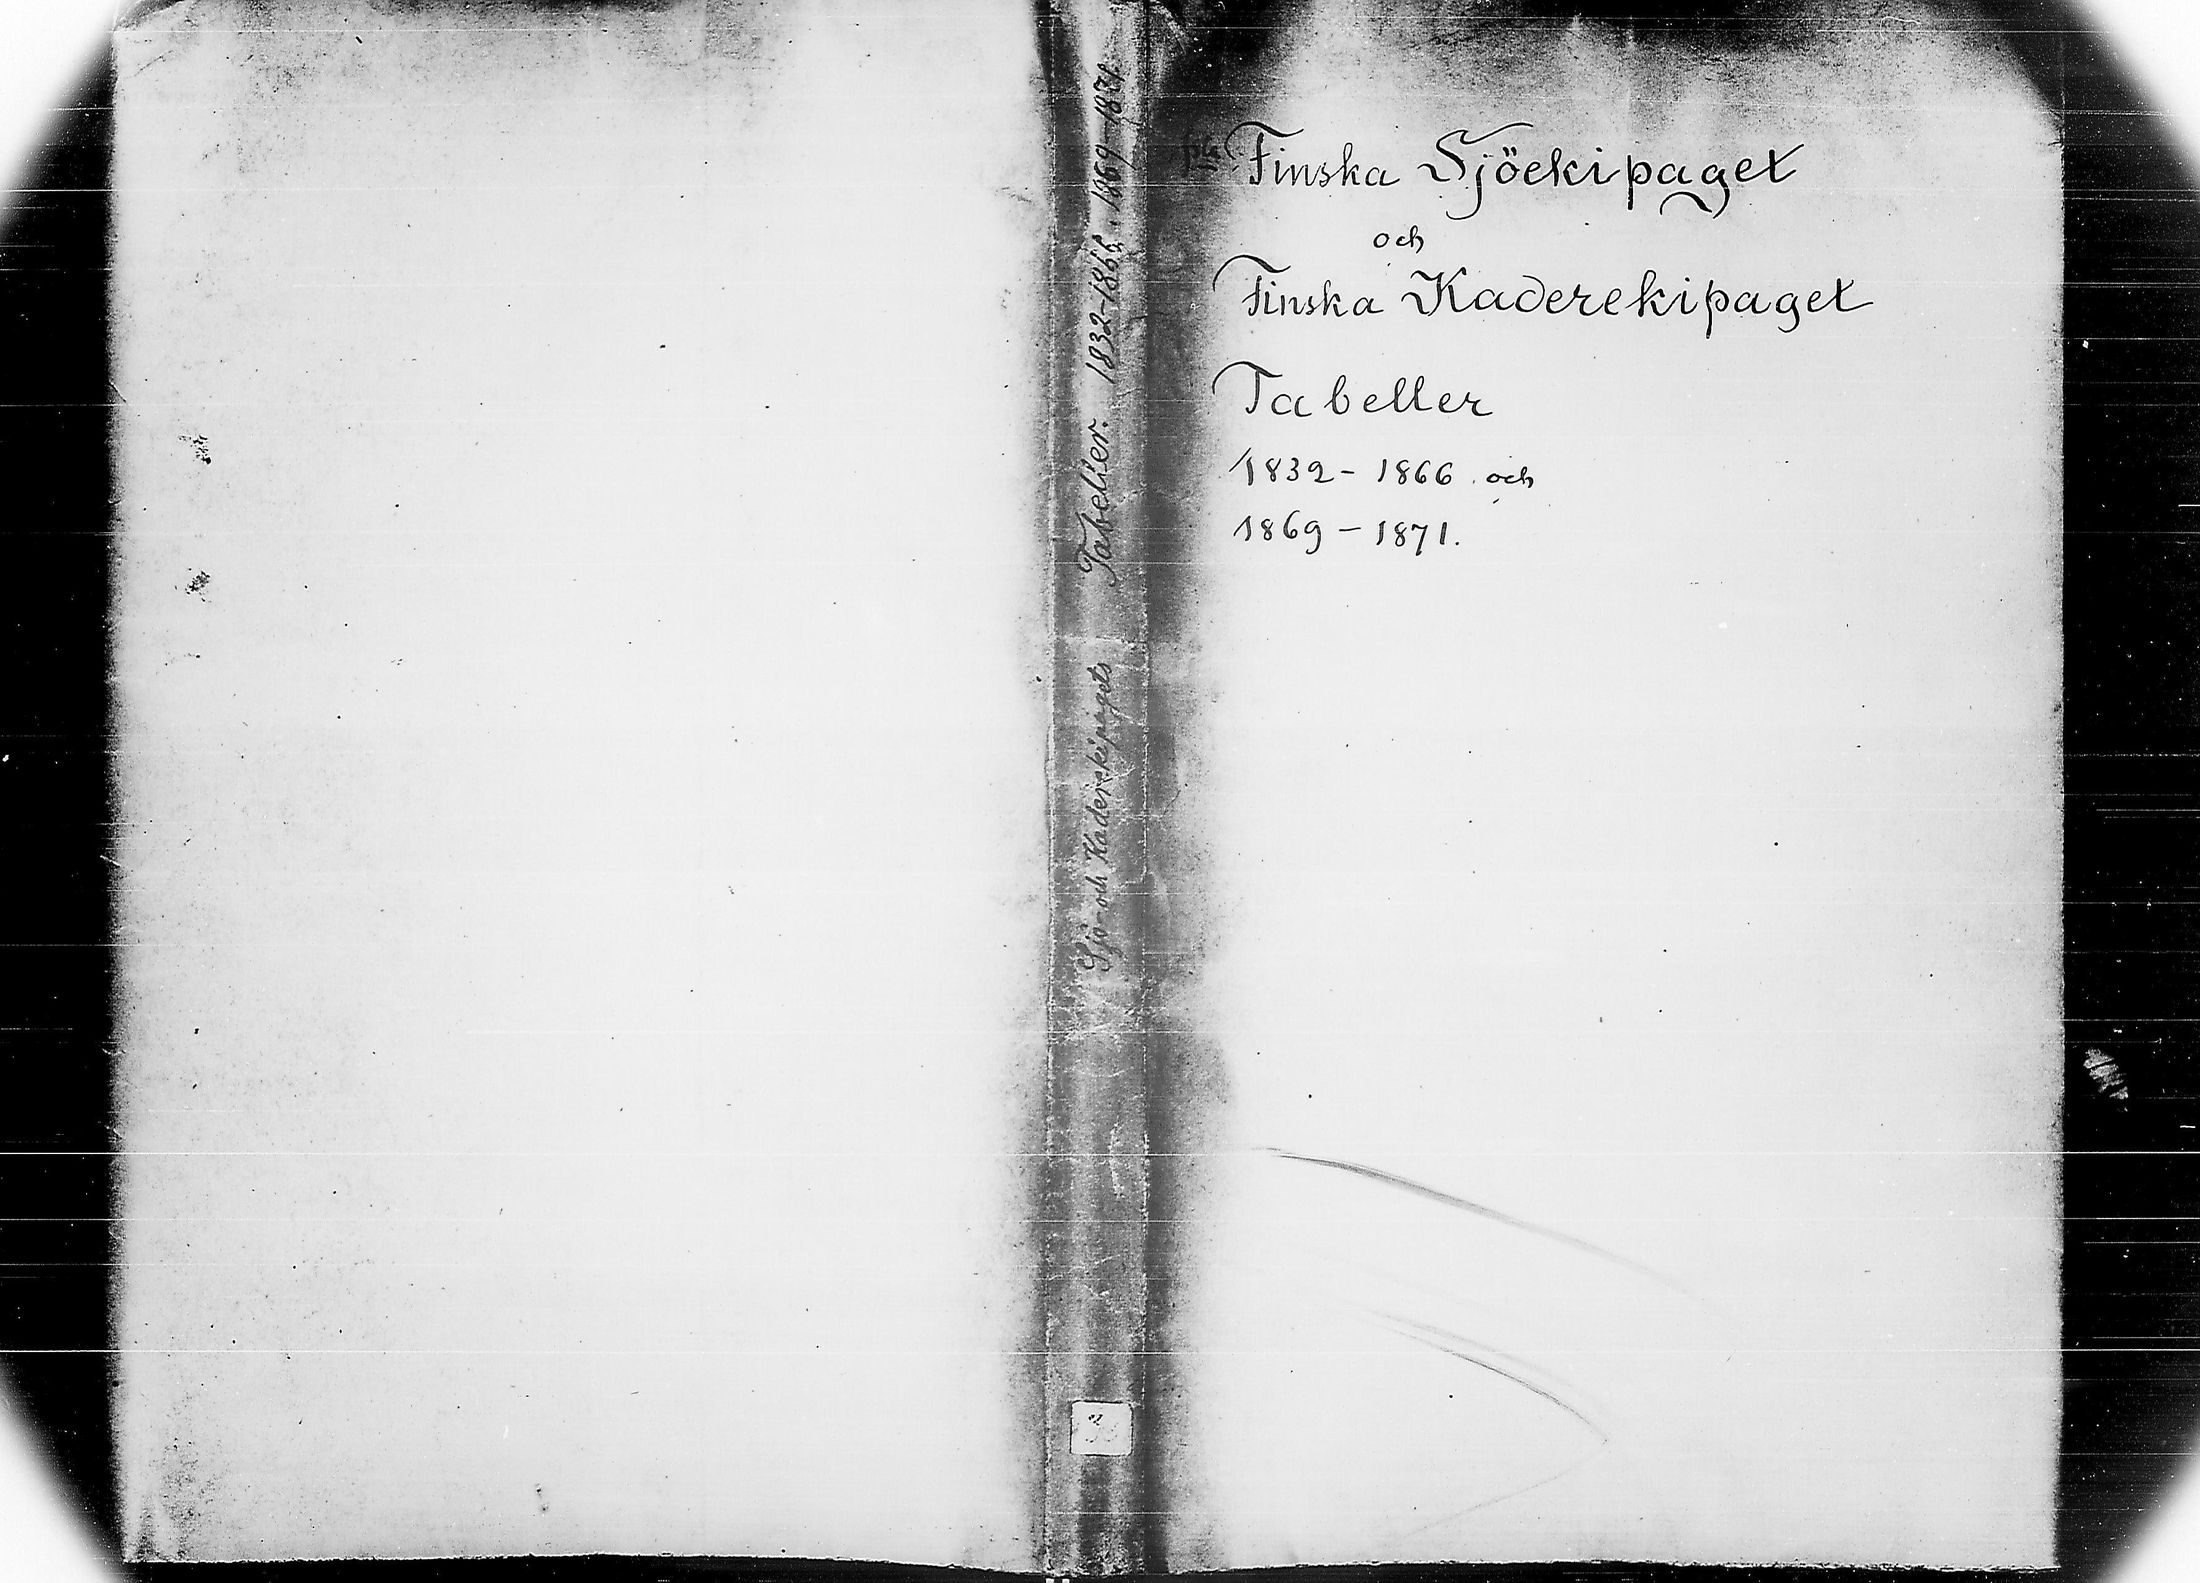 Finska Sjöekipaget
och
Finska Kaderekipaget
Tabeller
1832 - 1866 och
1869 - 1871.
Sjö- och Kaderekipagets Tabeller. 1832-1866, 1869-1871.